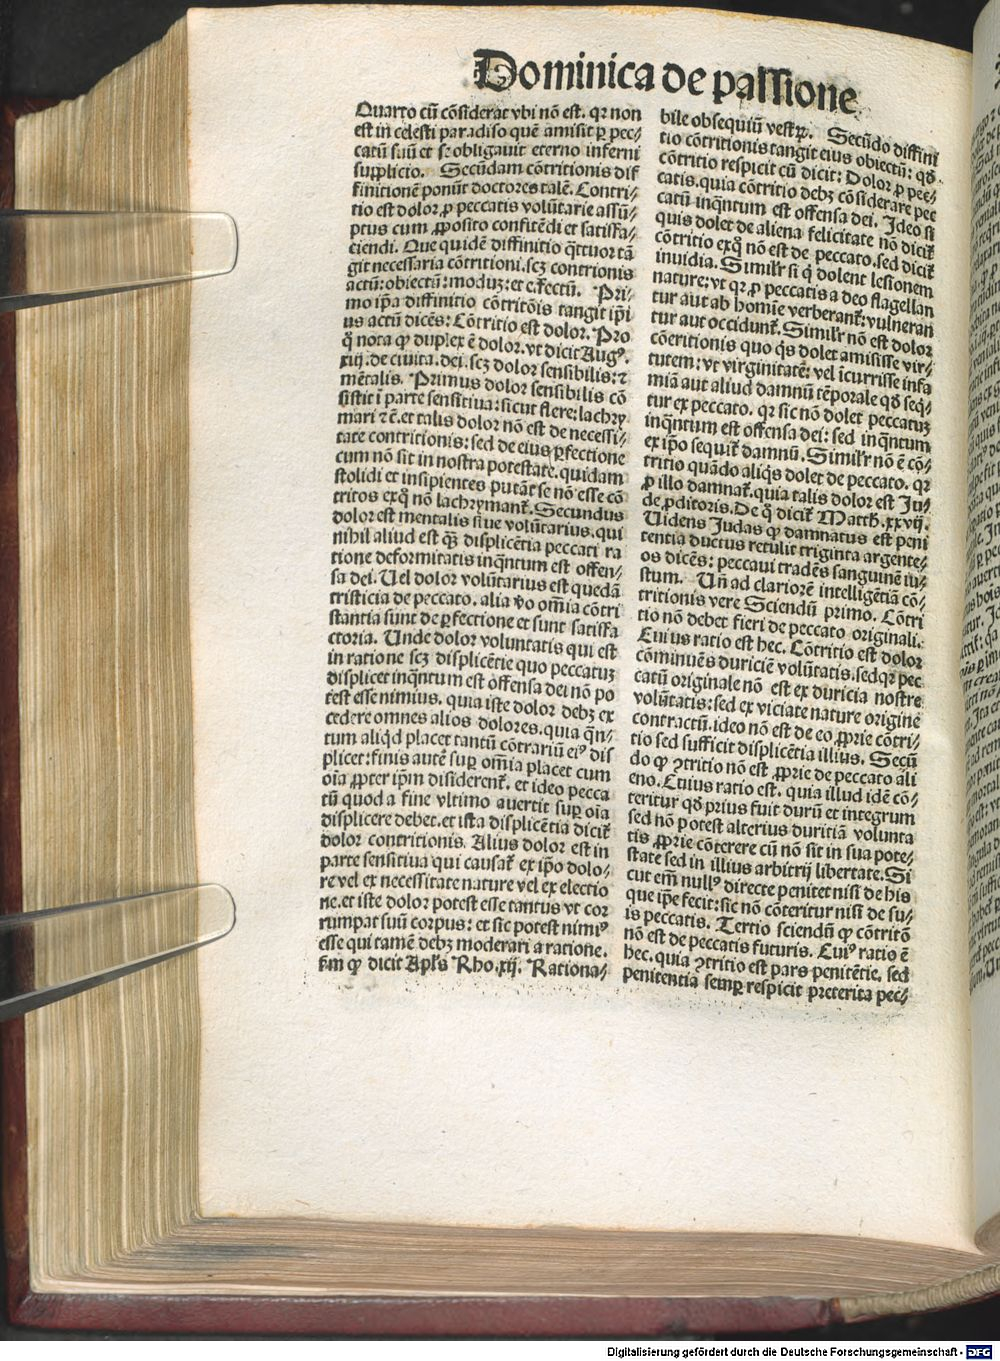 Dominica de passione
Quarto cū cōsiderat vbi nō est. qꝛ non
est in celesti paradiso quē amisit ꝑ pec⸗
catū suū et se obligauit eterno inferni
supplicio. Secūdam cōtritionis dif
finitionē ponūt doctores talē. Contri⸗
tio est dolor ꝓ peccatis volūtarie assū⸗
ptus cum ꝓposito confitēdi et satisfa⸗
ciendi. Que quidē diffinitio q̄ttuor tā
git necessaria cōtritioni. scꝫ contrionis
actū: obiectū: modūꝫ: et effectū. Pri⸗
mo ip̄a diffinitio cōtritōis tangit ip̄i
us actū dicēs: Cōtritio est dolor. Pro
q̄ nota ꝙ duplex ē dolor. vt dicit Augꝰ.
xiij. de ciuita. dei. scꝫ dolor sensibilis: ⁊
mētalis. Primus dolor sensibilis cō
sistit ī parte sensitiua: sicut flere: lachry
mari ⁊ ē. et talis dolor nō est de necessi⸗
tate contritionis: sed de eius ꝑfectione
cum nō sit in nostra potestate. quidam
stolidi et insipientes putāt se nō esse cō
tritos exq̄ nō lachrymant̄. Secundus
dolor est mentalis siue volūtarius. qui
nihil aliud est qꝫ displicētia peccati ra
tione deformitatis inq̄ntum est offen⸗
sa dei. Uel dolor volūtarius est quedā
tristicia de peccato. alia v̄o om̄ia cōtri
stantia sunt de ꝑfectione et sunt satisfa
ctoria. Unde dolor voluntatis qui est
in ratione scꝫ displicētie quo peccatuꝫ
displicet inq̄ntum est offensa dei nō po
test esse nimius. quia iste dolor debꝫ ex
cedere omnes alios dolores. quia q̄n⸗
tum aliqd placet tantū cōtrariū eiꝰ dis
plicet: finis autē suꝑ om̄ia placet cum
oīa ꝓpter ip̄m disiderent̄. et ideo pecca
tū quod a fine vltimo auertit suꝑ oīa
displicere debet. et ista displicētia dicit̄
dolor contritionis. Alius dolor est in
parte sensitiua qui causat̄ ex ip̄o dolo⸗
re vel ex necessitate nature vel ex electio
ne. et iste dolor potest esse tantus vt cor
rumpat suū corpus: et sic potest nimiꝰ
esse qui tamē debꝫ moderari a ratione.
s̄m ꝙ dicit Apl̄s Rho. xij. Rationa⸗
bile obsequiū vestꝝ. Secūdo diffini
tio cōtritionis tangit eius obiectū: qd̄
cōtritio respicit cū dicit: Dolor ꝓ pec⸗
catis. quia cōtritio debꝫ cōsiderare pec
catū inq̄ntum est offensa dei. Ideo si
quis dolet de aliena felicitate nō dicit̄
cōtritio exq̄ nō est de peccato. sed dicit̄
inuidia. Simil̄r si q̄ dolent lesionem
nature: vt qꝛ ꝓ peccatis a deo flagellan
tur aut ab homīe verberant̄: vulneran
tur aut occidunt̄. Simil̄r nō est dolor
cōtritionis quo q̄s dolet amisisse vir⸗
tutem: vt virginitatē: vel īcurrisse infa
miā aut aliud damnū tēporale qd̄ seq̄⸗
tur ex peccato. qꝛ sic nō dolet peccatuꝫ
inq̄ntum est offensa dei: sed inq̄ntum
ex ip̄o sequit̄ damnū. Simil̄r nō ē cō⸗
tritio quādo aliq̄s dolet de peccato. qꝛ
ꝓ illo damnat̄. quia talis dolor est Ju⸗
de ꝓditoris. De q̄ dicit̄ Matth. xxvij.
Uidens Judas ꝙ damnatus est peni
tentia ductus retulit triginta argente⸗
os dicēs: peccaui tradēs sanguinē iu⸗
stum. Uñ ad clariorē intelligētiā cō⸗
tritionis vere Sciendū primo. Cōtri
tio nō debet fieri de peccato originali.
Cuius ratio est hec. Cōtritio est dolor
cōminuēs duriciē volūtatis. sed qꝛ pec
catū originale nō est ex duricia nostre
volūtatis: sed ex viciate nature origine
contractū. ideo nō est de eo ꝓprie cōtri⸗
tio sed sufficit displicētia illius. Secū
do ꝙ ꝯtritio nō est ꝓprie de peccato ali
eno. Cuius ratio est. quia illud idē cō⸗
teritur qd̄ prius fuit durū et integrum
sed nō potest alterius duritiā volunta
tis ꝓprie cōterere cū nō sit in sua pote⸗
state sed in illius arbitrij libertate. Si
cut em̄ nullꝰ directe penitet nisi de his
que ip̄e fecit: sic nō cōteritur nisi de su⸗
is peccatis. Tertio sciendū ꝙ cōtritō
nō est de peccatis futuris. Cuiꝰ ratio ē
hec. quia ꝯtritio est pars penitētie. sed
penitentia semꝑ respicit preterita pec⸗
Digitalisierung gefördert durch die Deutsche Forschungsgemeinschaft - DFG